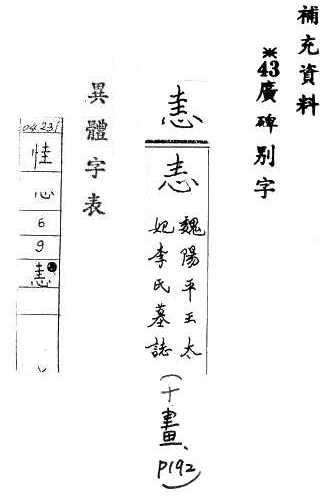 補充資料
※43廣碑別字
恚
恚
魏陽平王太
妃李氏墓誌
(十畫、P192)
異體字表
04231
㤬
心
6
9
恚